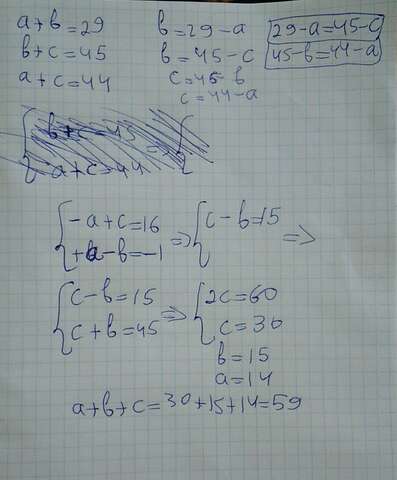 a+b=29
b+c=45
a+c=44
b=29-a
b=45-c
c=45-b
c=44-a
29-a=45-c
45-b=44-a
b+c=45 =>
a+c=44
-a+c=16
+a-b=-1 => c-b=15 =>
c-b=15
c+b=45 => 2c=60
c=30
b=15
a=14
a+b+c=30+15+14=59